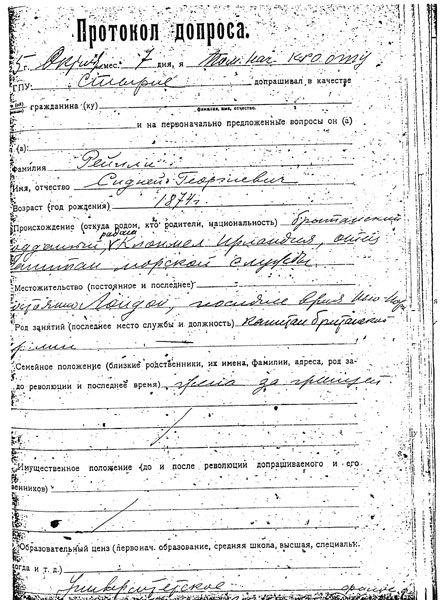 Протокол допроса.
5 г. Октября мес. 7 дня, я Пом. нач. КРО ОГПУ
ГПУ Стырне допрашивал в качестве
гражданина (ку)
фамилия, имя, отчество.
и на первоначально предложенные вопросы он (а)
(а):
фамилия Рейлли
Имя, отчество Сидней Георгиевич
Возраст (год рождения) 1874 г.
Происхождение (откуда родом, кто родители, национальность) британский
подданный, Клонмел Ирландия, отец
капитан морской службы
Местожительство (постоянное и последнее)
постоянно Лондон, последнее время Нью Йорк
Род занятий (последнее место службы и должность) капитан британской
армии
Семейное положение (близкие родственники, их имена, фамилии, адреса, род за-
до революции и последнее время) жена за границей
Имущественное положение (до и после революции допрашиваемого и его
венников)
Образовательный ценз (первонач. образование, средняя школа, высшая, специальн.
когда и т. д.)
Университетское